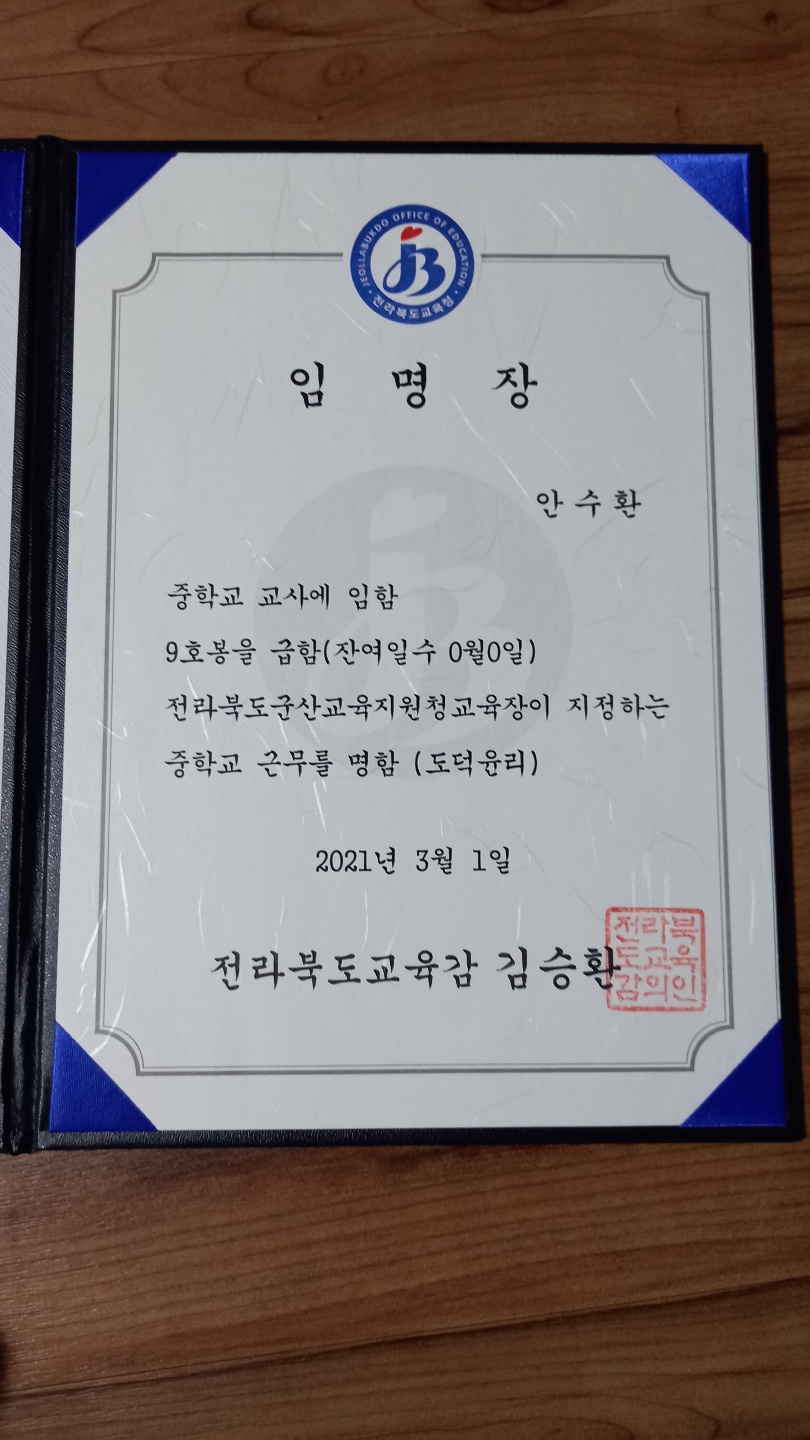 JEOLLABUKDO OFFICE OF EDUCATION
전라북도교육청
임 명 장
안 수 환
중학교 교사에 임함
9호봉을 급함(잔여일수 0월0일)
전라북도군산교육지원청교육장이 지정하는
중학교 근무를 명함 (도덕윤리)
2021년 3월 1일
전라북도교육감 김승환
전라북
도교육
감의인